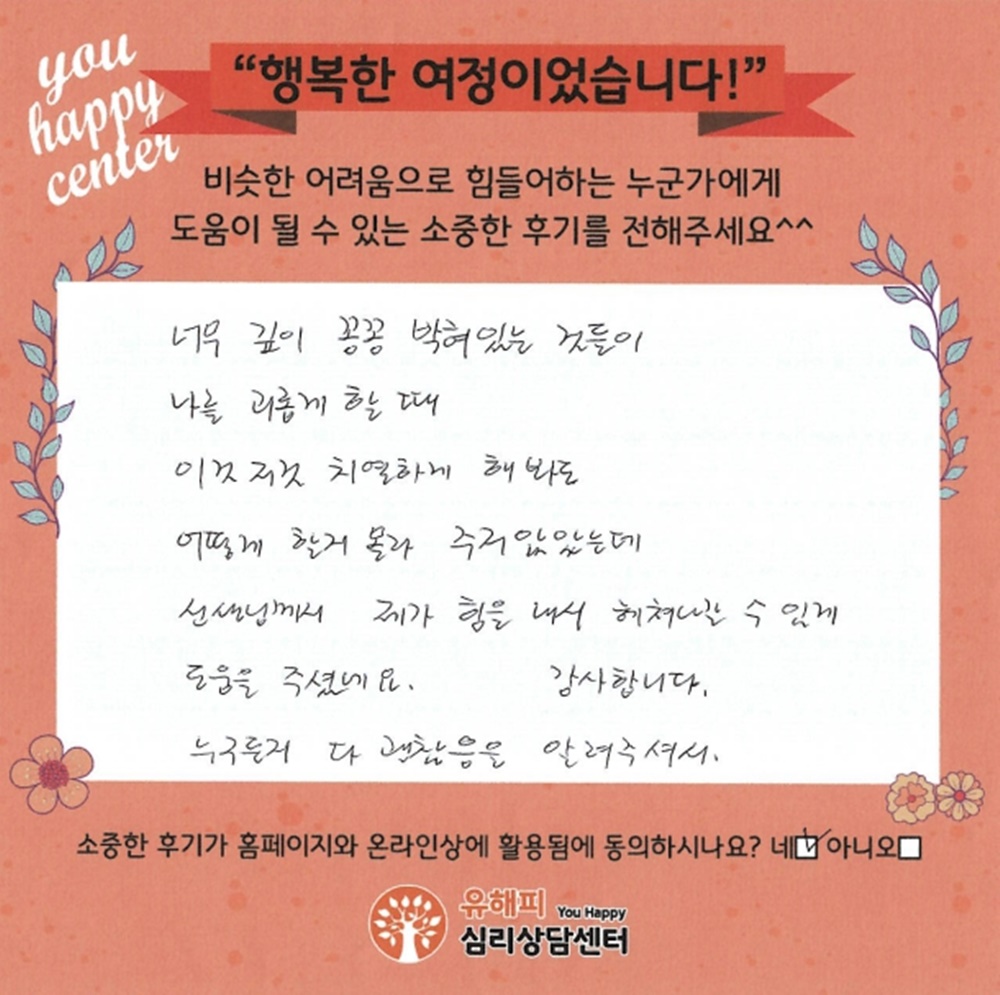 you
happy
center
“행복한 여정이었습니다!”
비슷한 어려움으로 힘들어하는 누군가에게
도움이 될 수 있는 소중한 후기를 전해주세요^^
너무 깊이 꽁꽁 박혀있는 것들이
나를 괴롭게 할 때
이것저것 치열하게 해봐도
어떻게 할지 몰라 주저앉았는데
선생님께서 제가 힘을 내서 헤쳐나갈 수 있게
도움을 주셨네요. 감사합니다.
누구든지 다 괜찮음을 알려주셔서.
소중한 후기가 홈페이지와 온라인상에 활용됨에 동의하시나요? 네☑ 아니오☐
유해피 You Happy
심리상담센터